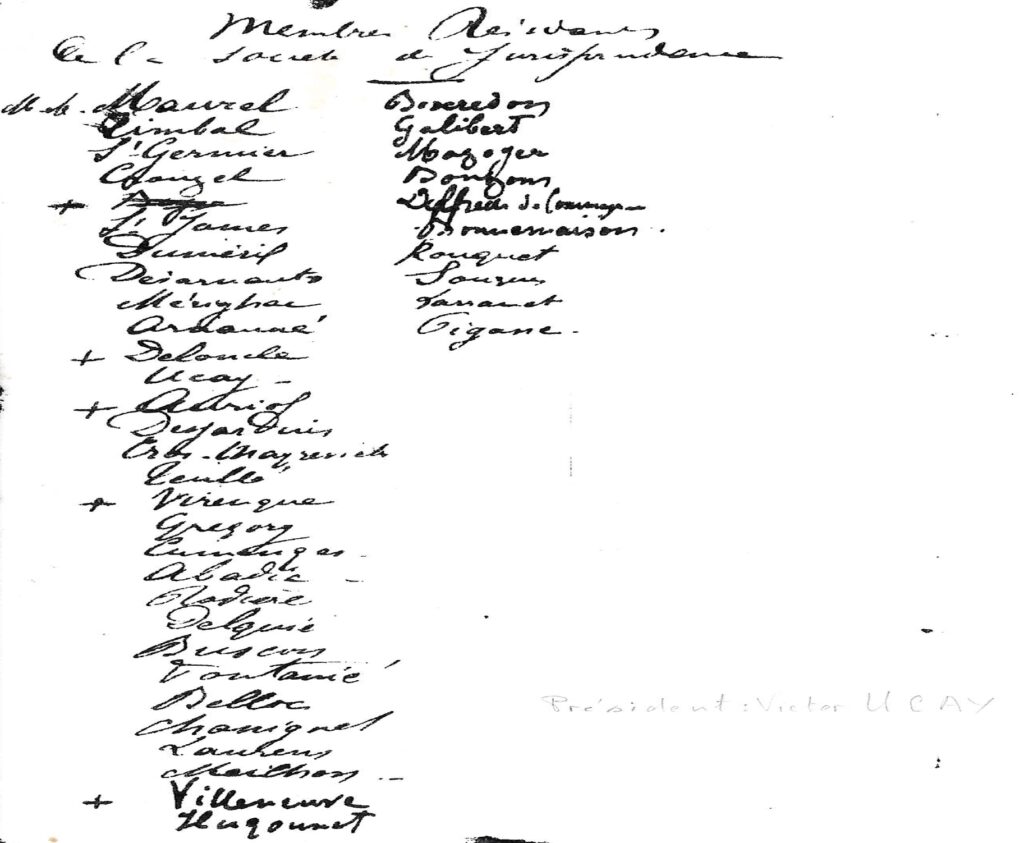 Membres Résidants
de la Société de Jurisprudence
M.M. Maurel
Timbal
St Germier
Crouzel
+
St James
Duméril
Desarnauts
Mérighac
Ardouné
+ Deloncle
Ucay
+ Auriol
Desjardins
Cros-Mayrevieile
Teullé
+ Virenque
Gregory
Cumenges
Abadie
Rodière
Delquié
Buscon
Fontanié
Belloc
Laurens
Mailhos
+ Villeneuve
Hugounet
Boscredon
Galibert
Mazoyer
Bouzons
Deffrein de Comminges
Bonnemaison.
Rouquet
Larrauet
Gigane.
Président : Victor UCAY